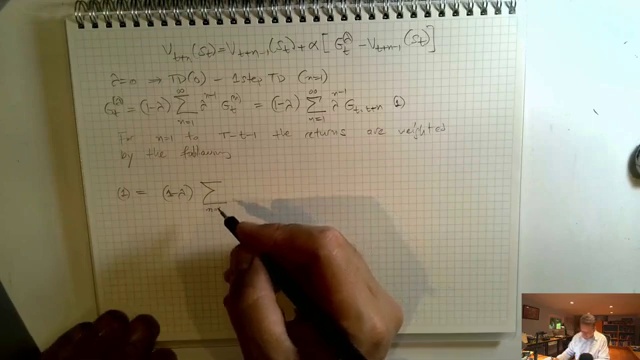 V_{t+n}(S_t) = V_{t+n-1}(S_t) + α [ G_t^λ - V_{t+n-1}(S_t) ]
λ=0 ⇒ TD(0) - 1 step TD (n=1)
G_t^{(λ)} = (1-λ) ∑_{n=1}^{∞} λ^{n-1} G_t^{(n)} = (1-λ) ∑_{n=1}^{∞} λ^{n-1} G_{t,t+n} (1)
For n=1 to T-t-1 the returns are weighted
by the following
(1) = (1-λ) ∑_{n=